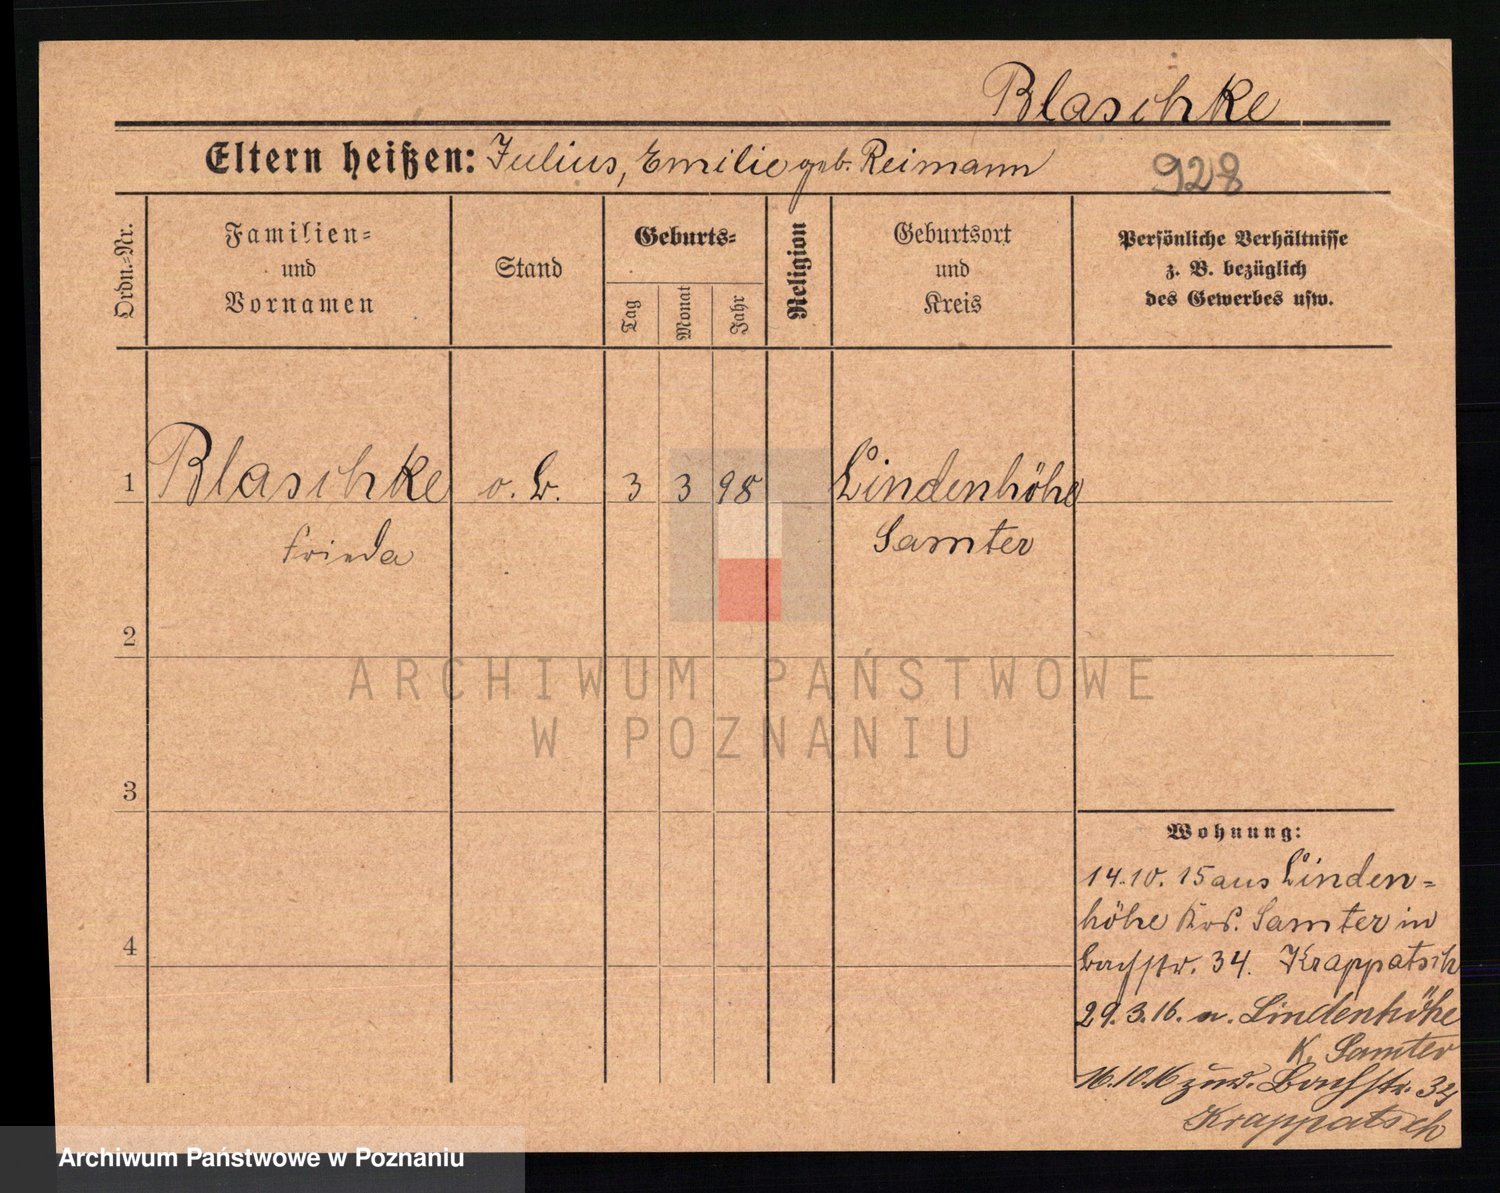 Blaschke
Eltern heißen: Julius, Emilie geb. Reimann
928
Ordn.-Nr.
Familien-
und
Vornamen
Stand
Geburts-
Tag
Monat
Jahr
Religion
Geburtsort
und
Kreis
Persönliche Verhältnisse
z. B. bezüglich
des Gewerbes usw.
1 Blaschke o. B. 3 3 98 Lindenhöhe
Frieda Samter
2
ARCHIWUM PAŃSTWOWE
W POZNANIU
3
Wohnung:
14.10.15 aus Linden-
höhe Krs. Samter in
4
Bachstr. 34. Krappatsch
29.3.16. n. Lindenhöhe
K. Samter
16.10.16 zur. Bachstr. 34
Krappatsch
Archiwum Państwowe w Poznaniu